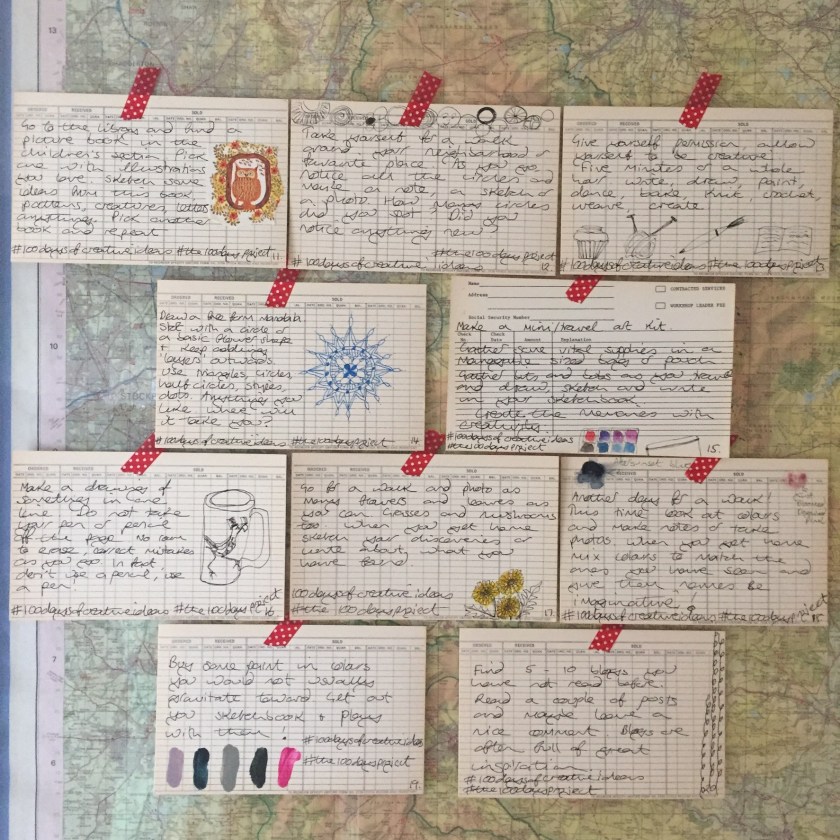 13
Go to the library and find a
picture book in the
children's section Pick
one with illustrations
you love. sketch some
ideas from this book
patterns, creatures, letters
anything. Pick another
book and repeat
#100daysofcreativeideas #the100daysproject 11
Take yourself for a walk
around your neighbourhood or
favourite place. As you go
notice all the circles and
make a note, a sketch or
a photo. How many circles
did you spot? Did you
notice anything new?
#the100daysproject
#100daysofcreativeideas 12.
Give yourself permission allow
yourself to be creative
Five minutes or a whole
hour write, draw, paint,
dance, bake, knit, crochet,
weave, create
#100daysofcreativeideas #the100daysproject 13
10
Draw a free form Mandala.
Start with a circle or
a basic flower shape
+ keep adding
'layers' outwards.
Use triangles, circles
half circles, stripes,
dots. Anything you
like where will
it take you?
#100daysofcreativeideas #the100daysproject 14
Name
Address
CONTRACTED SERVICES
WORKSHOP LEADER FEE
Social Security Number
Make a Mini/travel art kit.
Check No. Check Date Amount Explanation
Gather some vital supplies in a
Manageable sized bag or pouch
Gather bits and bobs as you travel
and draw, sketch and write
in your sketchbook.
Create the Memories with
creativity
#100daysofcreativeideas
#the100daysproject 15.
Make a drawing of
something in one
line Do not take
your pen or pencil
off the page. No room
to erase, correct mistakes
as you go. In fact
don't use a pencil, use
a pen!
#100daysofcreativeideas #the100daysproject 16
Go for a walk and photo as
Many flowers and leaves as
you can Grasses and Mushrooms
too. When you get home
sketch your discoveries or
write about what you
have found.
#100daysofcreativeideas
#the 100daysproject 17.
Another day for a walk!
This time look at colours
and make notes or take
photos. when you get home
mix colours to match the
ones you have seen and
give them names Be
imaginative!
#100daysofcreativeideas #the100daysproject 18
7
Buy some paint in colours
you would not usually
gravitate toward Get out
you sketchbook + play
with them!
#100daysofcreativeideas
#the100daysproject
19.
Find 5 - 10 blogs you
have not read before.
Read a couple of posts
and maybe leave a
nice comment Blogs are
often full of great
inspiration
#100daysofcreativeideas
#the100daysproject 20
6